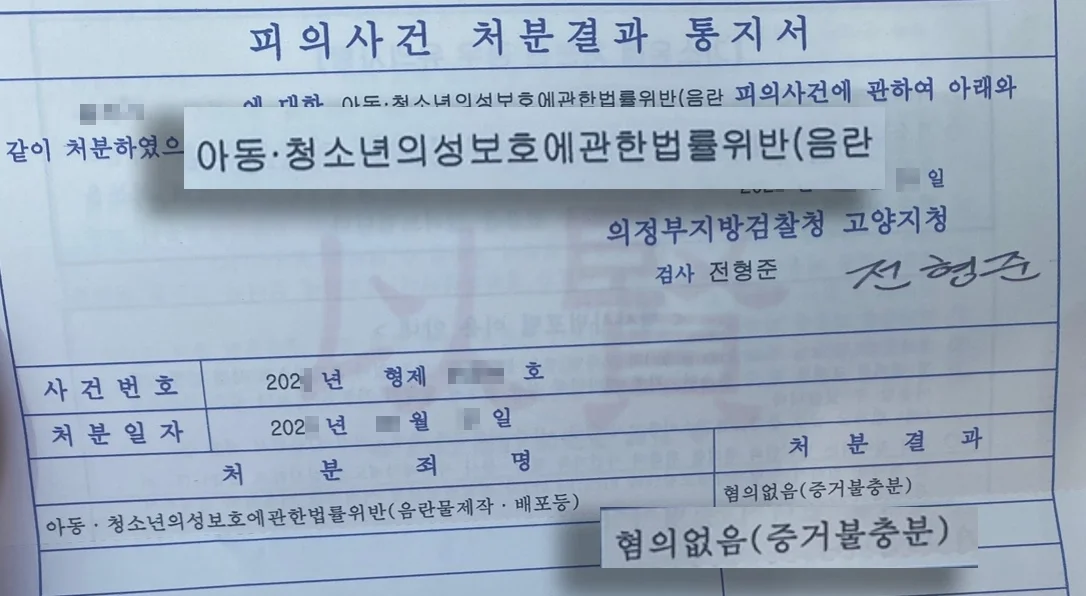 피의사건 처분결과 통지서
에 대한 아동·청소년의성보호에관한법률위반(음란 피의사건에 관하여 아래와
같이 처분하였으
아동·청소년의성보호에관한법률위반(음란
일
의정부지방검찰청 고양지청
검사 전형준 전형준
사건번호 202 년 형제 호
처분일자 202 년 월 일
처분죄명 처분결과
아동·청소년의성보호에관한법률위반(음란물제작·배포등) 혐의없음(증거불충분)
혐의없음(증거불충분)